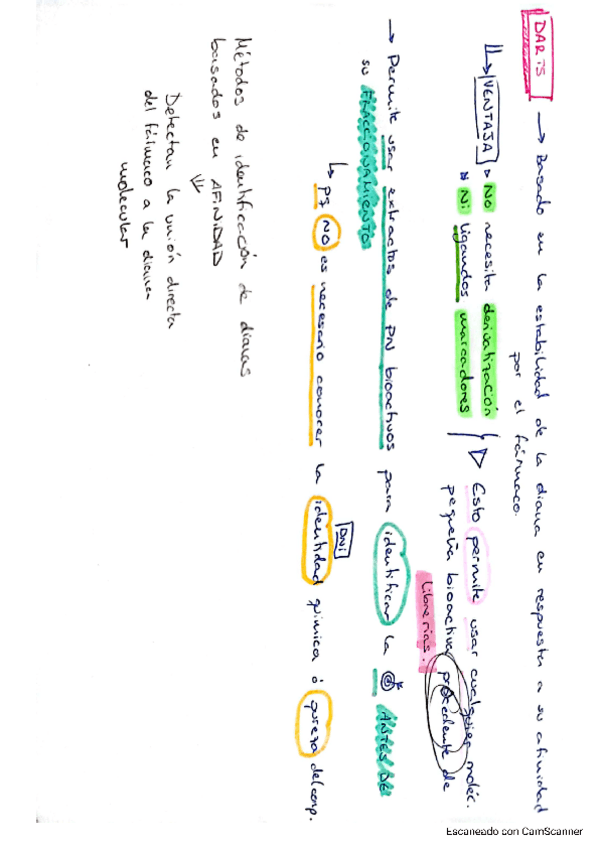 DARTS → Basado en la estabilidad de la diana en respuesta a su afinidad
por el fármaco.
↳ VENTAJA • No necesita derivatización
• Ni ligandos marcadores
▷ Esto permite usar cualquier moléc.
pequeña bioactiva procedente de
librerías.
→ Permite usar extractos de PN bioactivos para identificar la ANTES DE
su FRACCIONAMIENTO
DNi
↳ pq NO es necesario conocer la identidad química ó pureza del comp.
Métodos de identificación de dianas
basados en AFINIDAD
Detectan la unión directa
del fármaco a la diana
molecular
Escaneado con CamScanner